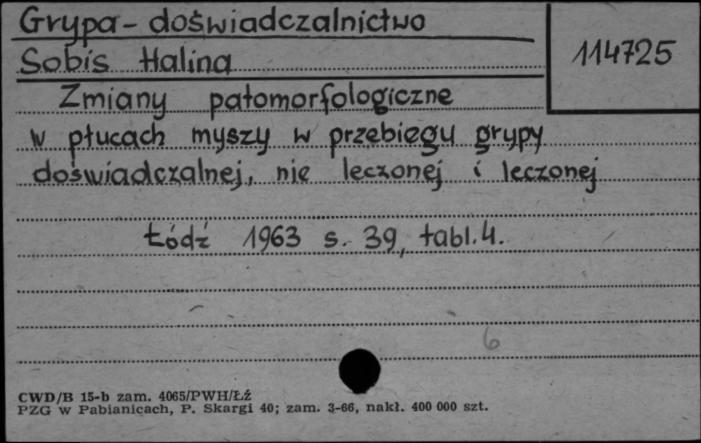 Grypa - doświadczalnictwo
114725
Sobis Halina
Zmiany patomorfologiczne
w płucach myszy w przebiegu grypy
doświadczalnej, nie leczonej i leczonej
Łódź 1963 s. 39, tabl. 4.
6
CWD/B 15-b zam. 4065/PWH/Łź
PZG w Pabianicach, P. Skargi 40; zam. 3-66, nakł. 400 000 szt.